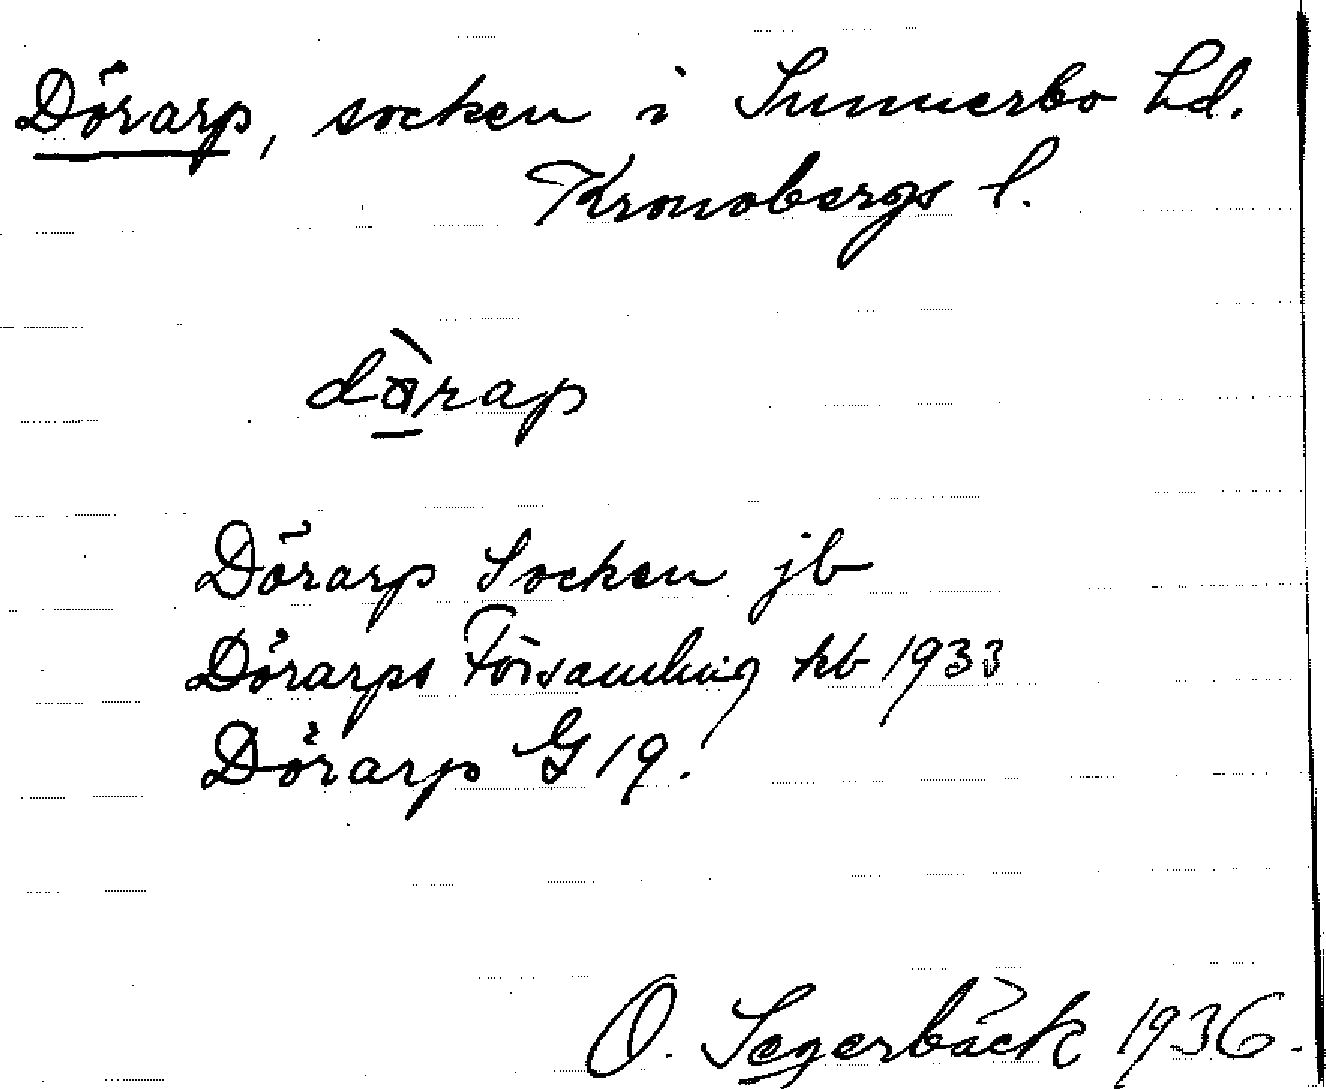 Dörarp, socken i Sunnerbo hd.
Kronobergs l.
dà̱rap
Dörarp Socken jb
Dörarps Församling kb 1933
Dörarp G 19.
O. Segerbäck 1936.